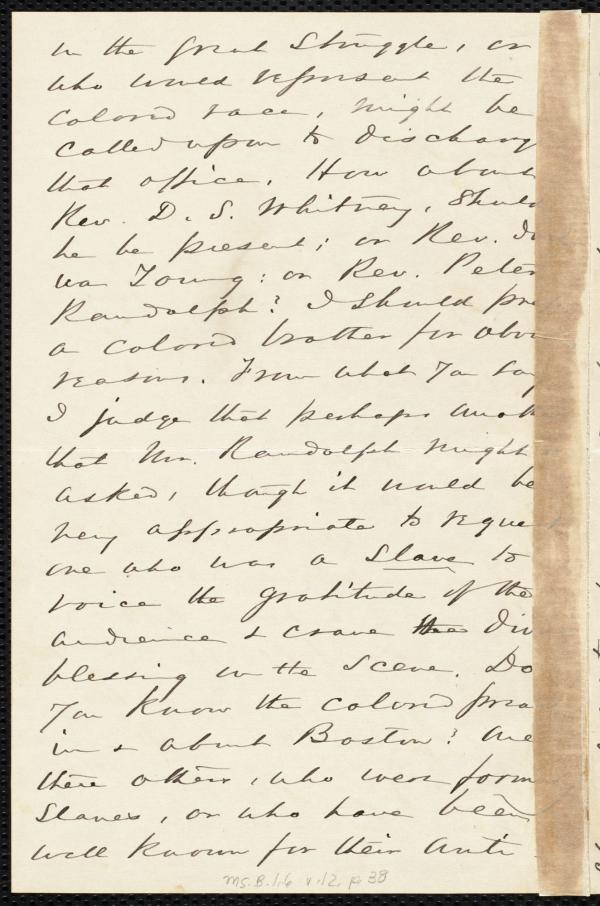 in the great struggle, or
who would represent the
colored race, might be
called upon to discharg
that office. How about
Rev. D. S. Whitney, Should
he be present; or Rev. Jos
ua Young: or Rev. Peter
Randolph? I should pref
a colored brother for abov
reasons. From what you say
I judge that perhaps
that Mr. Randolph might
asked, though it would be
very appropriate to reque
one who was a Slave to
voice the gratitude of the
audience & crave the div
blessing on the scene. Do
you know the colored prea
in & about Boston? Are
there others, who were form
Slaves, or who have been
well known for their Anti-
Ms. B. 1.6 v. 12, p. 38